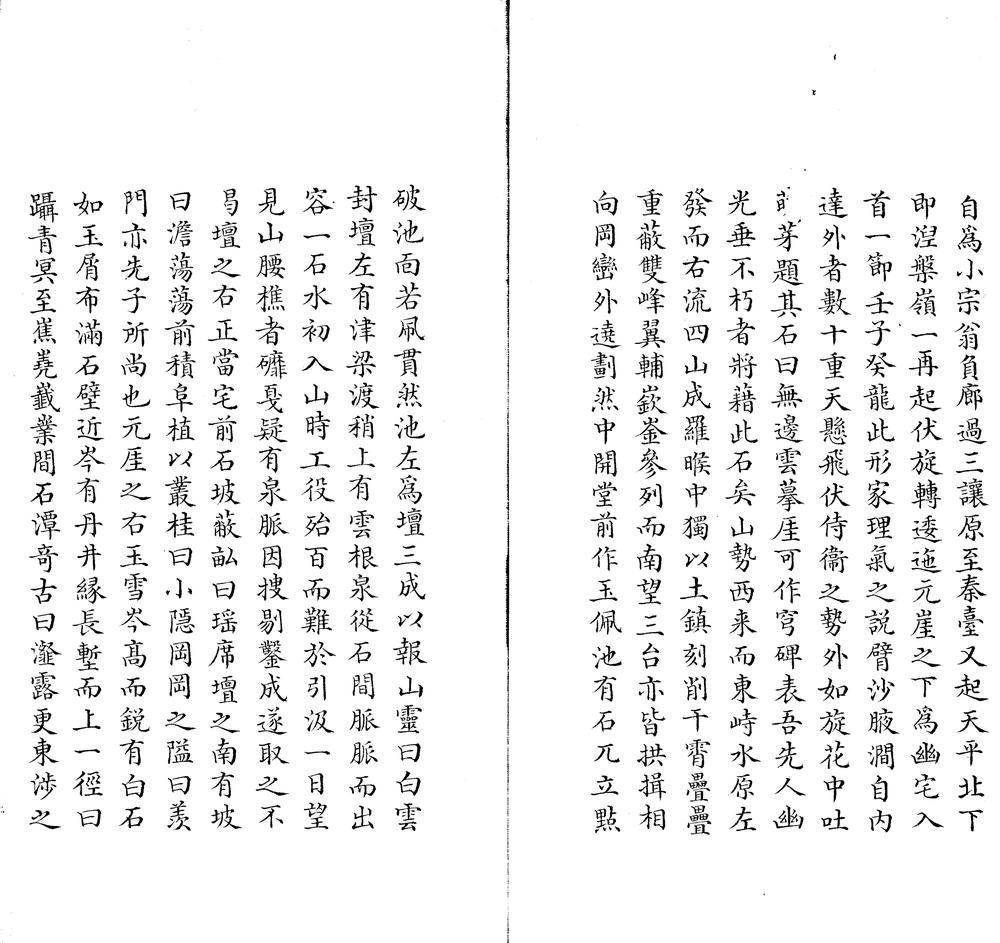 自爲小宗翁負廊過三讓原至秦臺又起天平北下
即涅槃嶺一再起伏旋轉逶迤元崖之下爲幽宅入
首一節壬子癸龍此形家理氣之說臂沙腋澗自内
達外者數十重天懸飛伏侍衞之勢外如旋花中吐
芽題其石曰無邊雲摹厓可作穹碑表吾先人幽
光垂不朽者將藉此石矣山勢西来而東峙水原左
發而右流四山成羅睺中獨以土鎮刻削干霄疊疊
重蔽雙峰翼輔嶔崟參列而南望三台亦皆拱揖相
向岡巒外遶劃然中開堂前作玉佩池有石兀立點
破池面若凧貫然池左爲壇三成以報山靈曰白雲
封壇左有津梁渡稍上有雲根泉從石間脈脈而出
容一石水初入山時工役殆百而難於引汲一日望
見山腰樵者礳戛疑有泉脈因搜剔鑿成遂取之不
曷壇之右正當宅前石坡蔽畝曰瑶席壇之南有坡
曰澹蕩蕩前積阜植以叢桂曰小隱岡岡之隘曰羨
門亦先子所尚也元厓之右玉雪岑髙而銳有白石
如玉屑布滿石壁近岑有丹井緣長塹而上一徑曰
躡青冥至嶣嶢巀嶪間石潭竒古曰瀣露更東涉之